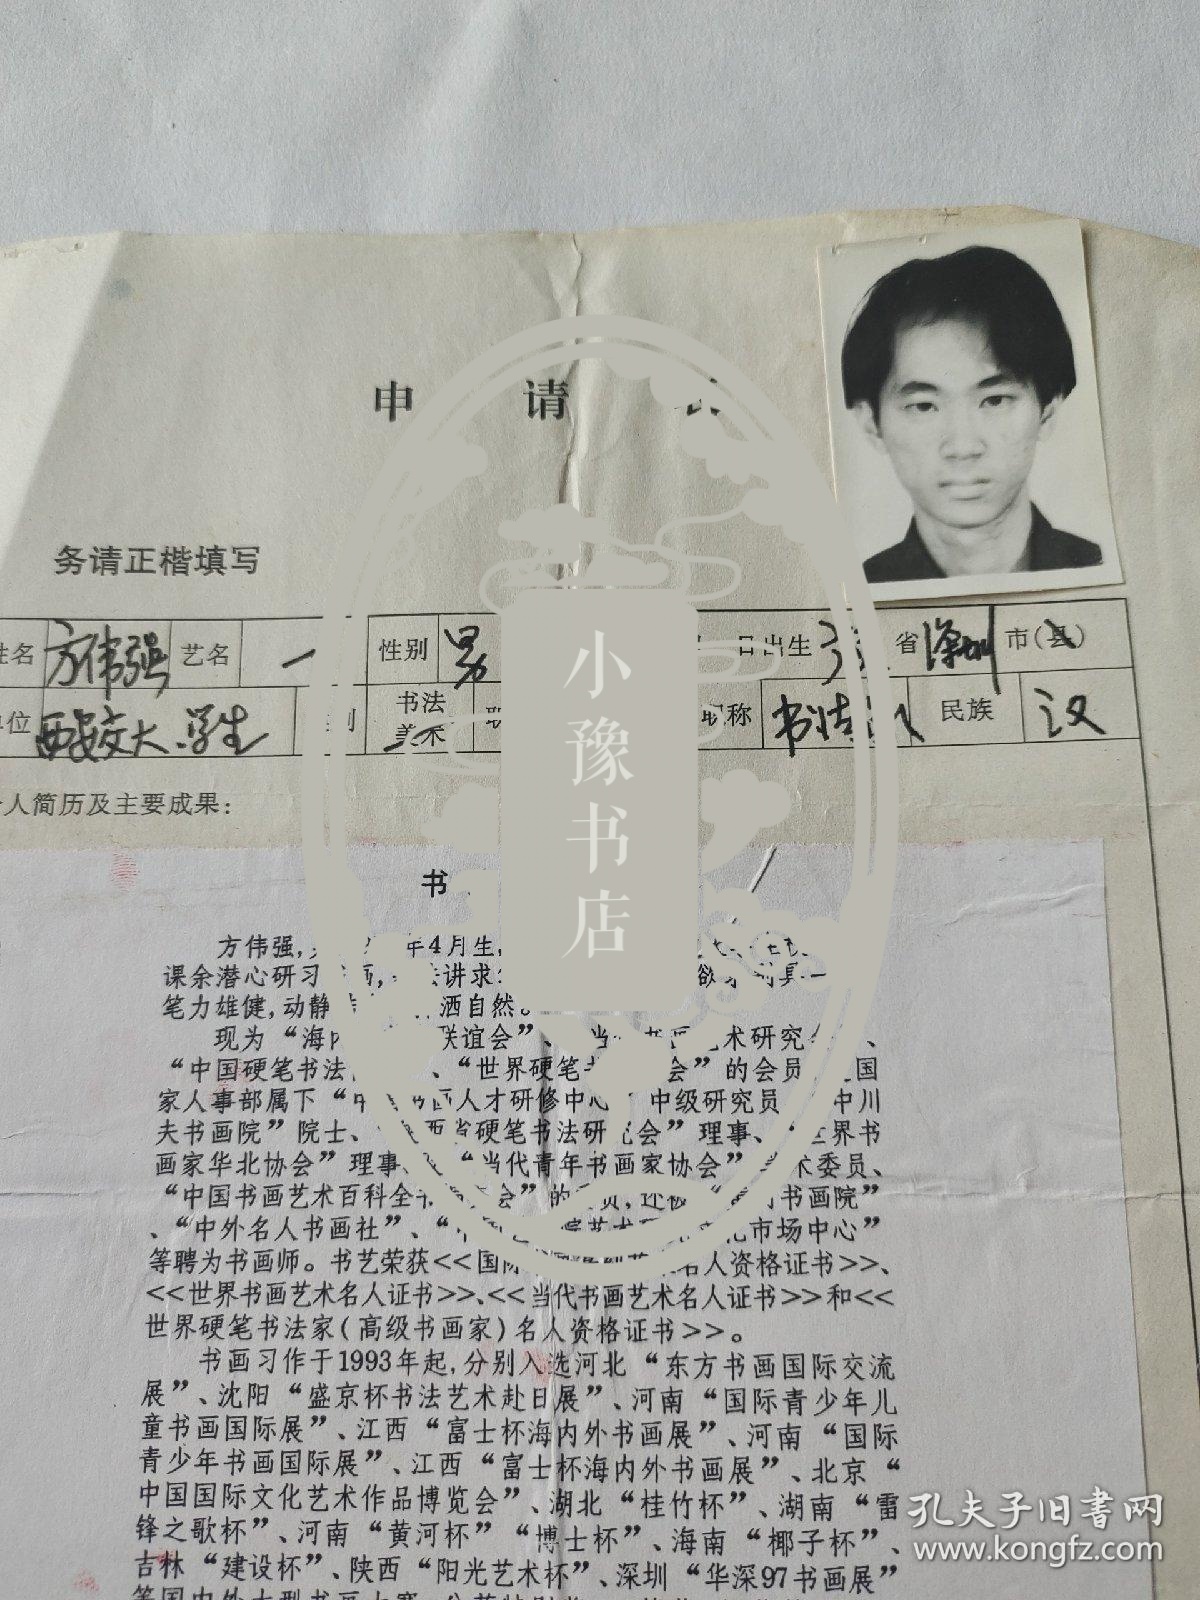 申 请
务请正楷填写
姓名 方伟强 艺名 一 性别 男 出生 省 深圳 市(县)
单位 西安交大 学生 书法 美术 职称 民族 汉
个人简历及主要成果:
书
方伟强, 年4月生,
课余潜心研习 讲求
笔力雄健,动静 洒自然。
现为“海 联谊会”、 术研究会
“中国硬笔书法 、“世界硬笔 会”的会员 国
家人事部属下“ 人才研修中心 中级研究员 中川
夫书画院”院士、 硬笔书法研究会”理事、 世界书
画家华北协会”理事、 “当代青年书画家协会” 术委员、
“中国书画艺术百科全书 会”的 书画院”
、“中外名人书画社”、“ 市场中心”
等聘为书画师。书艺荣获<<国际 名人资格证书>>、
<<世界书画艺术名人证书>>、<<当代书画艺术名人证书>>和<<
世界硬笔书法家(高级书画家)名人资格证书>>。
书画习作于1993年起,分别入选河北“东方书画国际交流
展”、沈阳“盛京杯书法艺术赴日展”、河南“国际青少年儿
童书画国际展”、江西“富士杯海内外书画展”、河南“国际
青少年书画国际展”、江西“富士杯海内外书画展”、北京“
中国国际文化艺术作品博览会”、湖北“桂竹杯”、湖南“雷
锋之歌杯”、河南“黄河杯”“博士杯”、海南“椰子杯”、
吉林“建设杯”、陕西“阳光艺术杯”、深圳“华深97书画展”
等国内外大型书画大赛,
小豫书店
孔夫子旧书网
www.kongfz.com